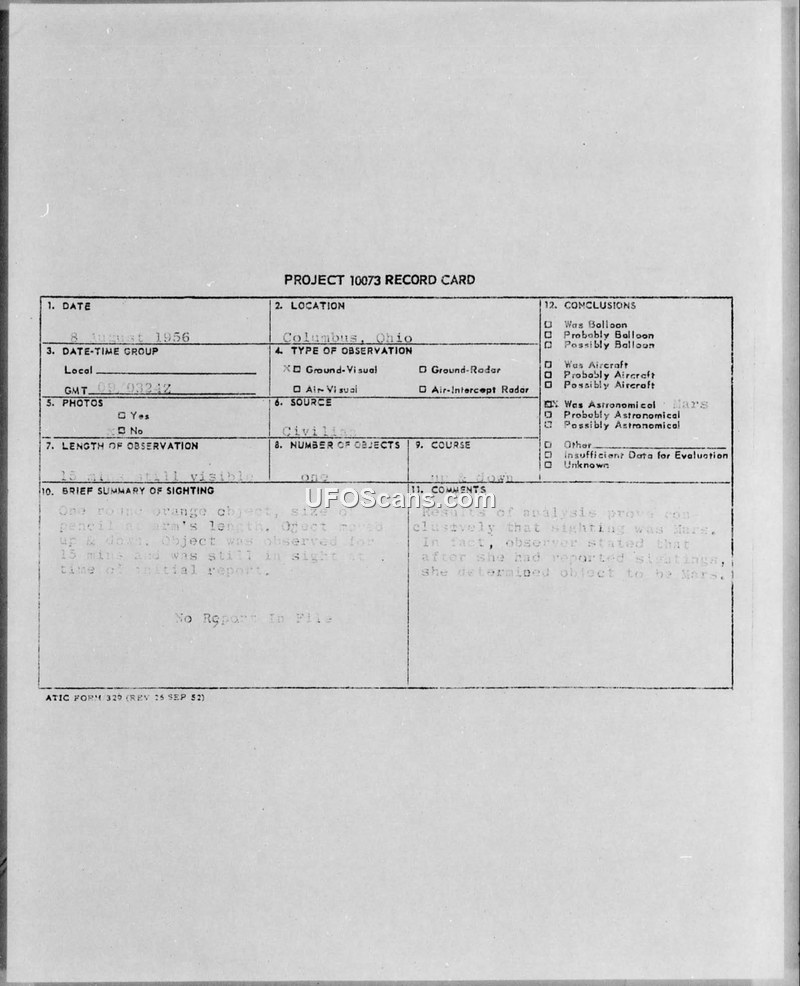 PROJECT 10073 RECORD CARD
1. DATE
8 August 1956
2. LOCATION
Columbus, Ohio
12. CONCLUSIONS
Was Balloon
Probably Balloon
Possibly Balloon
Was Aircraft
Probably Aircraft
Possibly Aircraft
Was Astronomical Mars
Probably Astronomical
Possibly Astronomical
Other
Insufficient Data for Evaluation
Unknown
3. DATE-TIME GROUP
Local
GMT 09/0324Z
4. TYPE OF OBSERVATION
X Ground-Visual
Ground-Radar
Air-Visual
Air-Intercept Radar
5. PHOTOS
Yes
No
6. SOURCE
Civilian
7. LENGTH OF OBSERVATION
15 mins still visible
8. NUMBER OF OBJECTS
one
9. COURSE
up & down
10. BRIEF SUMMARY OF SIGHTING
One round orange object, size of
pencil at arm's length. Object moved
up & down. Object was observed for
15 mins and was still in sight at
time of initial report.
No Report In File
11. COMMENTS
Results of analysis prove con-
clusively that sighting was Mars.
In fact, observer stated that
after she had reported sightings,
she determined object to be Mars.
ATIC FORM 329 (REV 26 SEP 52)
UFOScans.com